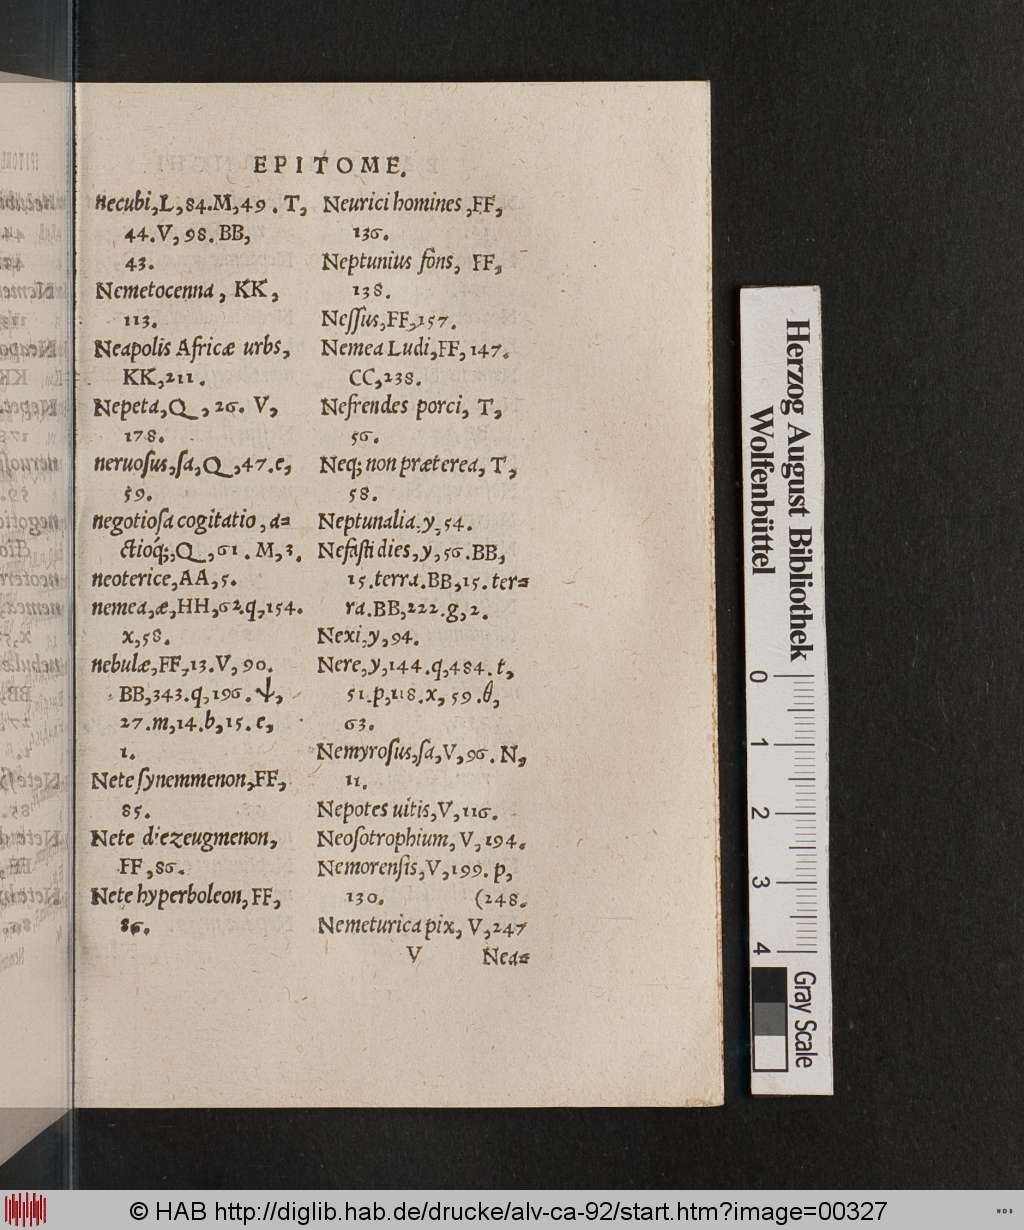 EPITOME.
necubi,L,84.M,49. T,
44.V,98.BB,
43.
Nemetocenna, KK,
113.
Neapolis Africæ urbs,
KK,211.
Nepeta,Q,26. V,
178.
neruoſus,ſa,Q,47.e,
59.
negotioſa cogitatio, a=
ctioq́;,Q,61. M,3.
neoterice,AA,5.
nemea,æ,HH,62.q,154.
x,58.
nebulæ,FF,13.V,90.
BB,343.q,196.ψ,
27.m,14.b,15.e,
1.
Nete ſynemmenon,FF,
85.
Nete diezeugmenon,
FF,86.
Nete hyperboleon,FF,
86.
Neurici homines,FF,
136.
Neptunius fons, FF,
138.
Neſſus,FF,157.
Nemea Ludi,FF,147.
CC,238.
Nefrendes porci, T,
56.
Neq; non præterea, T,
58.
Neptunalia.y,54.
Nefaſti dies,y,56.BB,
15.terra.BB,15.ter=
ra.BB,222.g,2.
Nexi,y,94.
Nere,y,144.q,484.t,
51.p,118.x,59.θ,
63.
Nemyroſus,ſa,V,96. N,
11.
Nepotes uitis,V,116.
Neoſotrophium,V,194.
Nemorenſis,V,199.p,
130. (248.
Nemeturica pix, V,247
V Nea=
Herzog August Bibliothek
Wolfenbüttel
0 1 2 3 4
Gray Scale
© HAB http://diglib.hab.de/drucke/alv-ca-92/start.htm?image=00327